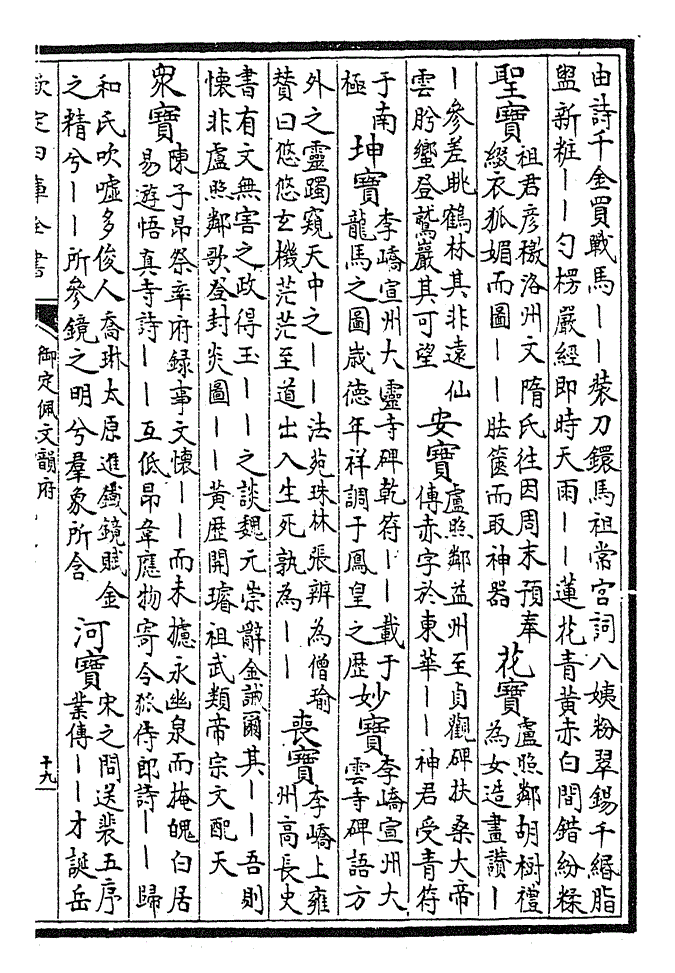 由詩千金買戰馬——裝刀鐶馬祖常宮詞八姨粉翠錫千緡脂
盥新粧——勻楞嚴經即時天雨——蓮花青黃赤白間錯紛糅
聖寶
祖君彦檄洛州文隋氏往因周末預奉
綴衣狐媚而圖——胠篋而取神器
花寶
盧照鄰胡樹禮
為女造畫讚—
—參差眺鶴林其非遠仙
雲肹蠁登鷲巖其可望
安寶
盧照鄰益州至貞觀碑扶桑大帝
傳赤字於東華——神君受青符
于南
極
坤寶
李嶠宣州大靈寺碑乾符——載于
龍馬之圖嵗德年祥調于鳳皇之歴
妙寶
李嶠宣州大
雲寺碑語方
外之靈躅窺天中之——法苑珠林張辨為僧瑜
賛曰悠悠玄機茫茫至道出入生死孰為——
喪寶
李嶠上雍
州高長史
書有文無害之政得玉——之談魏元崇辭金誡爾其——吾則
懷非盧照鄰歌登封炎圖——黄歴開璿祖武類帝宗文配天
衆寶
陳子昂祭率府録事文懷——而未攄永幽泉而掩魄白居
易遊悟真寺詩——互低昂韋應物寄令狐侍郎詩——歸
和氏吹噓多俊人喬琳太原進鐵鏡賦金
之精兮——所參鏡之明兮羣象所含
河寶
宋之問送裴五序
業傳——才誕岳
欽定四庫全書
御定佩文韻府
十九